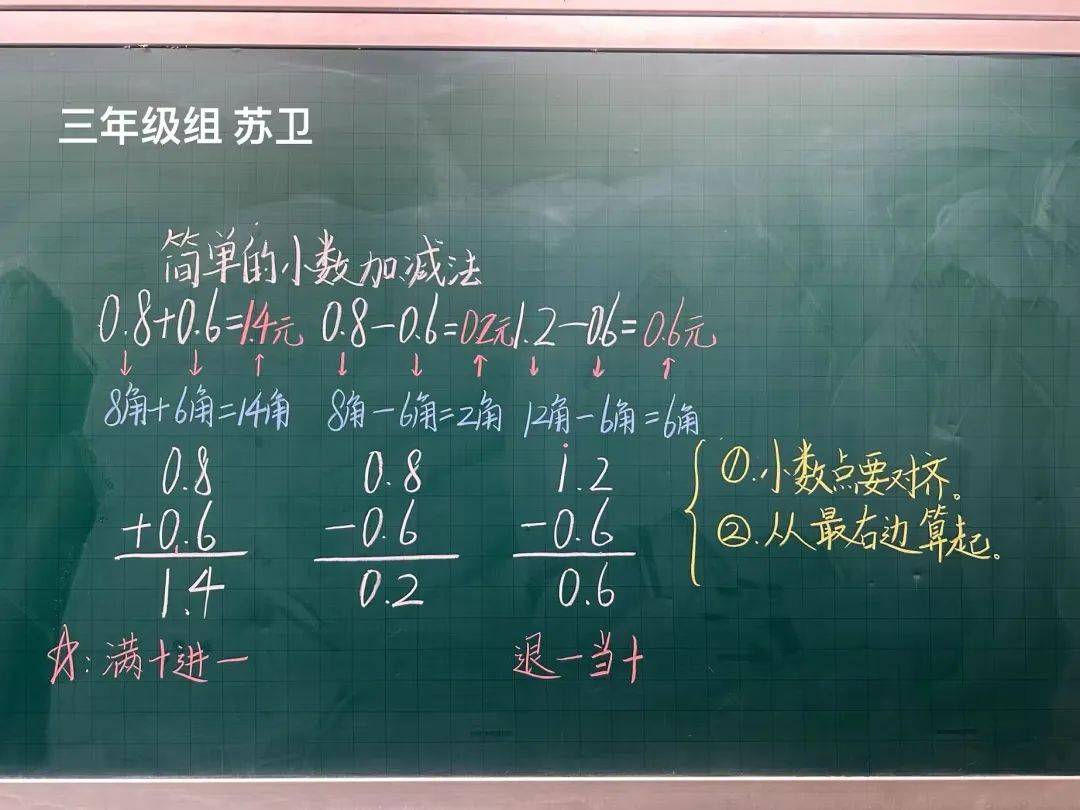 三年级组 苏卫
简单的小数加减法
0.8+0.6=1.4元 0.8-0.6=0.2元 1.2-0.6=0.6元
↓ ↓ ↑ ↓ ↓ ↑ ↓ ↓ ↑
8角+6角=14角 8角-6角=2角 12角-6角=6角
0.8 0.8 1.2
+0.6 -0.6 -0.6
1.4 0.2 0.6
①.小数点要对齐。
②.从最右边算起。
☆:满十进一 退一当十